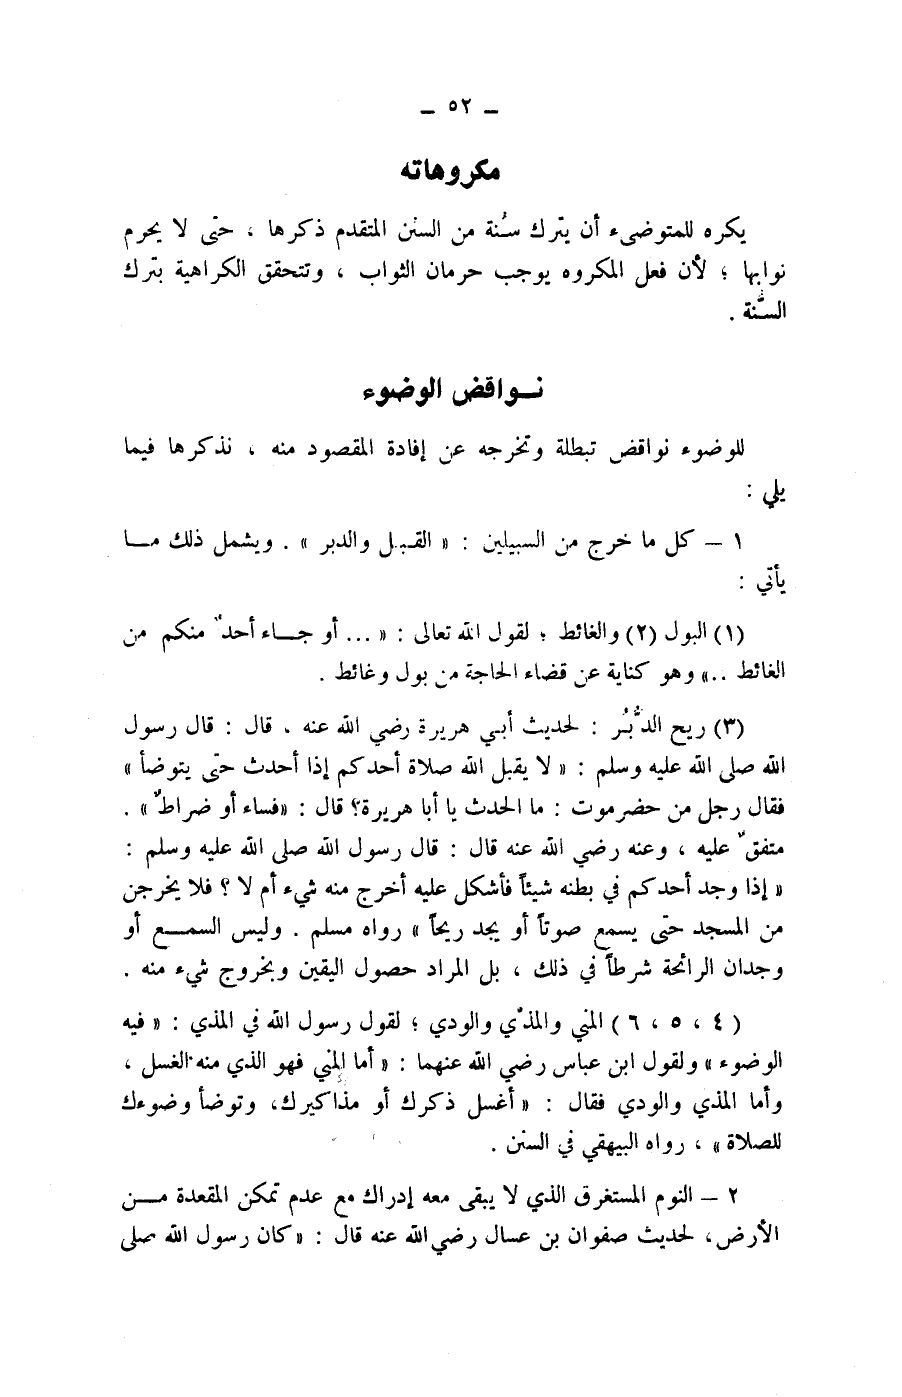 – ٥٢ –
مكروهاته
يكره للمتوضىء أن يترك سُنة من السنن المتقدم ذكرها ، حتى لا يحرم
ثوابها ؛ لأن فعل المكروه يوجب حرمان الثواب ، وتتحقق الكراهية بترك
السنُّة .
نــواقض الوضوء
للوضوء نواقض تبطلة وتخرجه عن إفادة المقصود منه ، نذكرها فيما
يلي :
١ – كل ما خرج من السبيلين : « القبل والدبر » . ويشمل ذلك مــا
يأتي :
(١) البول (٢) والغائط ؛ لقول الله تعالى : « ... أو جــاء أحدٌ منكم من
الغائط ..» وهو كناية عن قضاء الحاجة من بول وغائط .
(٣) ريح الدُّبُر : لحديث أبي هريرة رضي الله عنه . قال : قال رسول
الله صلى الله عليه وسلم : « لا يقبل الله صلاة أحدكم إذا أحدث حتى يتوضأ »
فقال رجل من حضرموت : ما الحدث يا أبا هريرة؟ قال : «فساء أو ضراطٌ» .
متفقٌ عليه ، وعنه رضي الله عنه قال : قال رسول الله صلى الله عليه وسلم :
« إذا وجد أحدكم في بطنه شيئاً فأشكل عليه أخرج منه شيء أم لا ؟ فلا يخرجن
من المسجد حتى يسمع صوتاً أو يجد ريحاً » رواه مسلم . وليس السمــع أو
وجدان الرائحة شرطاً في ذلك ، بل المراد حصول اليقين وبخروج شيء منه .
( ٤ ، ٥ ، ٦ ) المني والمذْي والودي ؛ لقول رسول الله في المذي : « فيه
الوضوء » ولقول ابن عباس رضي الله عنهما : « أما المني فهو الذي منه الغسل ،
وأما المذي والودي فقال : « أغسل ذكرك أو مذاكيرك، وتوضأ وضوءك
للصلاة » ، رواه البيهقي في السنن .
٢ – النوم المستغرق الذي لا يبقى معه إدراك مع عدم تمكن المقعدة مــن
الأرض، لحديث صفوان بن عسال رضي الله عنه قال : «كان رسول الله صلى